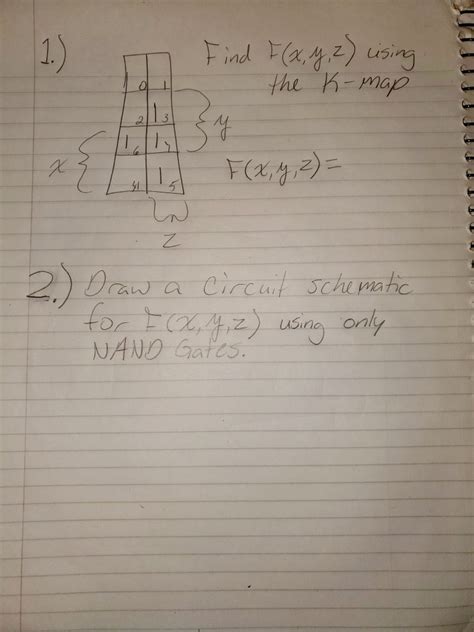 1.) Find F(x,y,z) using
the K-map
0 1
2 1 3
1 6 1 7
4 1 5
x
y
z
F(x,y,z)=
2.) Draw a Circuit schematic
for F(x,y,z) using only
NAND Gates.